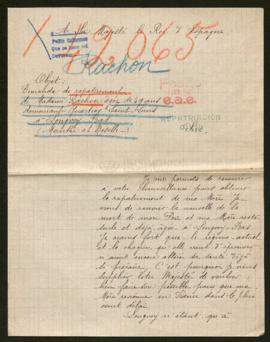 A Sa Majesté le Roi d'Espagne
Rachon
Objet:
Demande de rapatriement
de Madame Rachon
demeurant Quartier Saint Louis
à Longwy-Bas
(Meurthe et Moselle)
REPATRIACION
Je me permets de recourir
à votre bienveillance pour obtenir
le rapatriement de ma Mère. Je
viens de recevoir la nouvelle de la
mort de mon Père et ma Mère reste
seule et déjà âgée à Longwy-Bas.
Je crains fort que le régime actuel
et le chagrin qu'elle vient d'éprouver
n'aient encore altéré sa santé déjà
si précaire. C'est pourquoi je viens
supplier votre Majesté de vouloir
bien faire son possible pour que ma
Mère revienne en France dans le plus
court délai.
Longwy n'étant qu'à